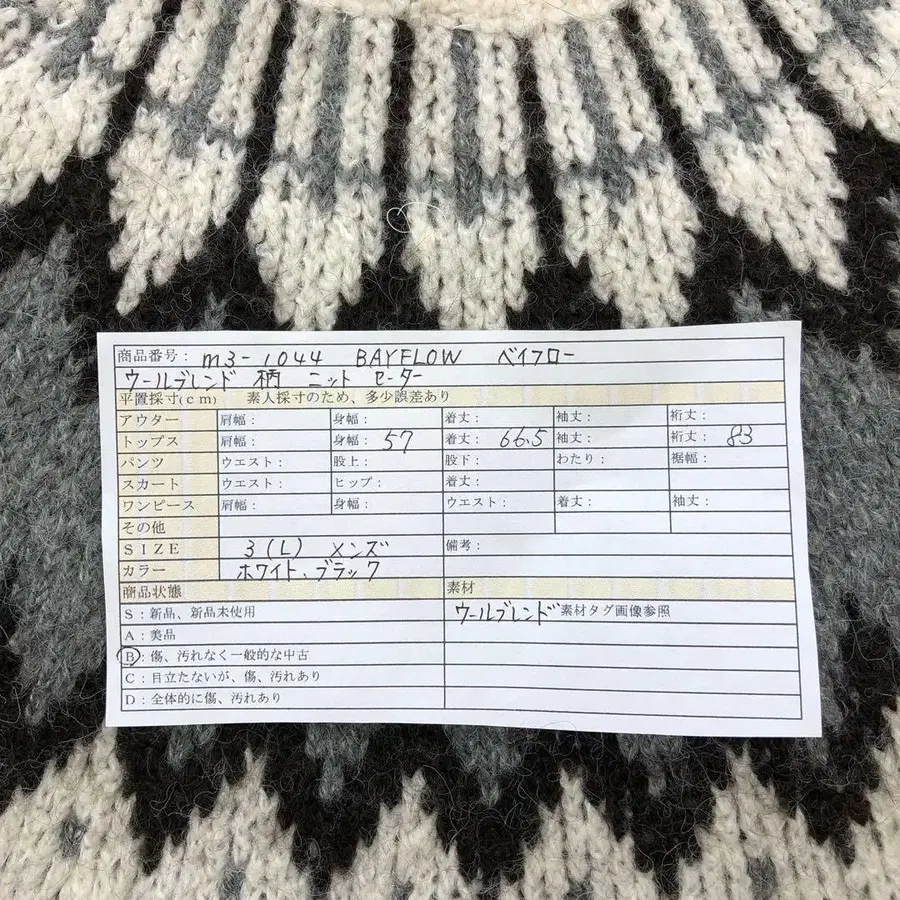 商品番号： m3-1044 BAYFLOW ベイフロー
ウールブレンド 柄 ニット セーター
平置採寸(cm) 素人採寸のため、多少誤差あり
アウター 肩幅： 身幅： 着丈： 袖丈： 裄丈：
トップス 肩幅： 身幅：57 着丈： 66.5 袖丈： 裄丈： 83
パンツ ウエスト： 股上： 股下： わたり： 裾幅：
スカート ウエスト： ヒップ： 着丈：
ワンピース 肩幅： 身幅： ウエスト： 着丈： 袖丈：
その他
SIZE 3(L) メンズ 備考：
カラー ホワイト、ブラック
商品状態 素材
S：新品、新品未使用 ウールブレンド 素材タグ画像参照
A：美品
B：傷、汚れなく一般的な中古
C：目立たないが、傷、汚れあり
D：全体的に傷、汚れあり